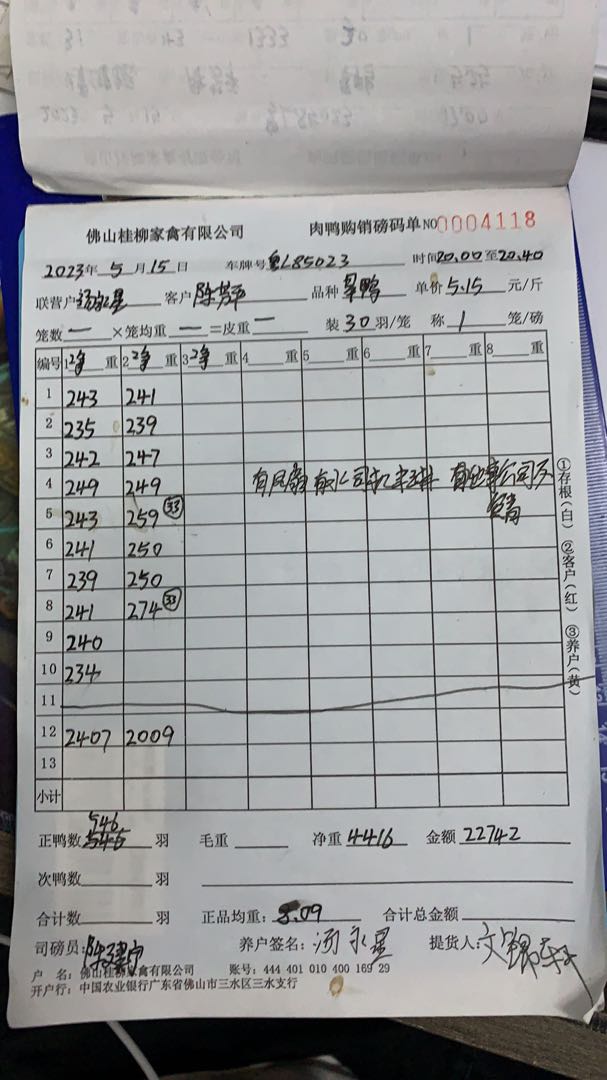 佛山桂柳家禽有限公司 肉鸭购销磅码单 NO 0004118
2023年 5月15日 车牌号 粤L85023 时间20.00至20.40
联营户 汤永星 客户 陈芳平 品种 单价5.15元/斤
笼数 一 ×笼均重 一 =皮重 一 装30羽/笼 称 1 笼/磅
编号 1净重 2净重 3净重 4重 5重 6重 7重 8重
1 243 241
2 235 239
3 242 247
4 249 249
5 243 259 33
6 241 250
7 239 250
8 241 274 33
9 240
10 234
11
12 2407 2009
13
小计
①存根(白) ②客户(红) ③养户(黄)
546
正鸭数 545 羽 毛重 净重 4416 金额 22742
次鸭数 羽
合计数 羽 正品均重: 8.09 合计总金额
司磅员: 陈建宁 养户签名: 汤永星 提货人:
户 名: 佛山桂柳家禽有限公司 账号: 444 401 010 400 169 29
开户行: 中国农业银行广东省佛山市三水区三水支行